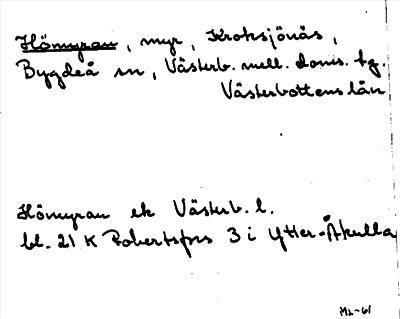 Hömyran, myr, Kroksjönäs,
Bygdeå sn, Västerb. mell. doms. tg.
Västerbottens län
Hömyran ek Västerb. l.
bl. 21 K Robertsfors 3 i Ytter-Åkulla
ML-61